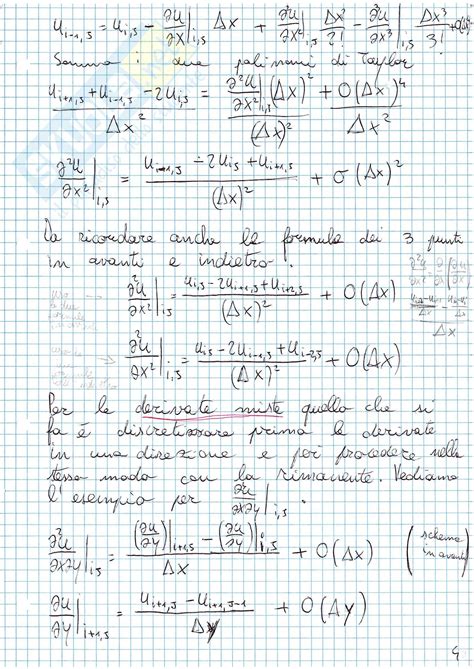 u_{i-1,j} = u_{i,j} - ∂u/∂x|_{i,j} Δx + ∂²u/∂x²|_{i,j} Δx²/2! - ∂³u/∂x³|_{i,j} Δx³/3! +
Sommo i due polinomi di Taylor
(u_{i+1,j} + u_{i-1,j} - 2u_{i,j})/Δx² = ∂²u/∂x²|_{i,j} (Δx)²/(Δx)² + O(Δx)⁴/Δx²
∂²u/∂x²|_{i,j} = (u_{i-1,j} - 2u_{i,j} + u_{i+1,j})/(Δx)² + O(Δx)²
Da ricordare anche le formule dei 3 punti
in avanti e indietro:
∂²u/∂x²|_{i,j} = (u_{i,j} - 2u_{i+1,j} + u_{i+2,j})/(Δx)² + O(Δx)
∂²u/∂x²|_{i,j} = (u_{i,j} - 2u_{i-1,j} + u_{i-2,j})/(Δx)² + O(Δx)
Per le derivate miste quello che si
fa è discretizzare prima le derivate
in una direzione e poi procedere nello
stesso modo con la rimanente. Vediamo
l'esempio per ∂²u/∂x∂y|_{i,j} :
∂²u/∂x∂y|_{i,j} = ((∂u/∂y)|_{i+1,j} - (∂u/∂y)|_{i,j})/Δx + O(Δx) (schema
in avanti)
∂u/∂y|_{i+1,j} = (u_{i+1,j} - u_{i+1,j-1})/Δy + O(Δy)
4